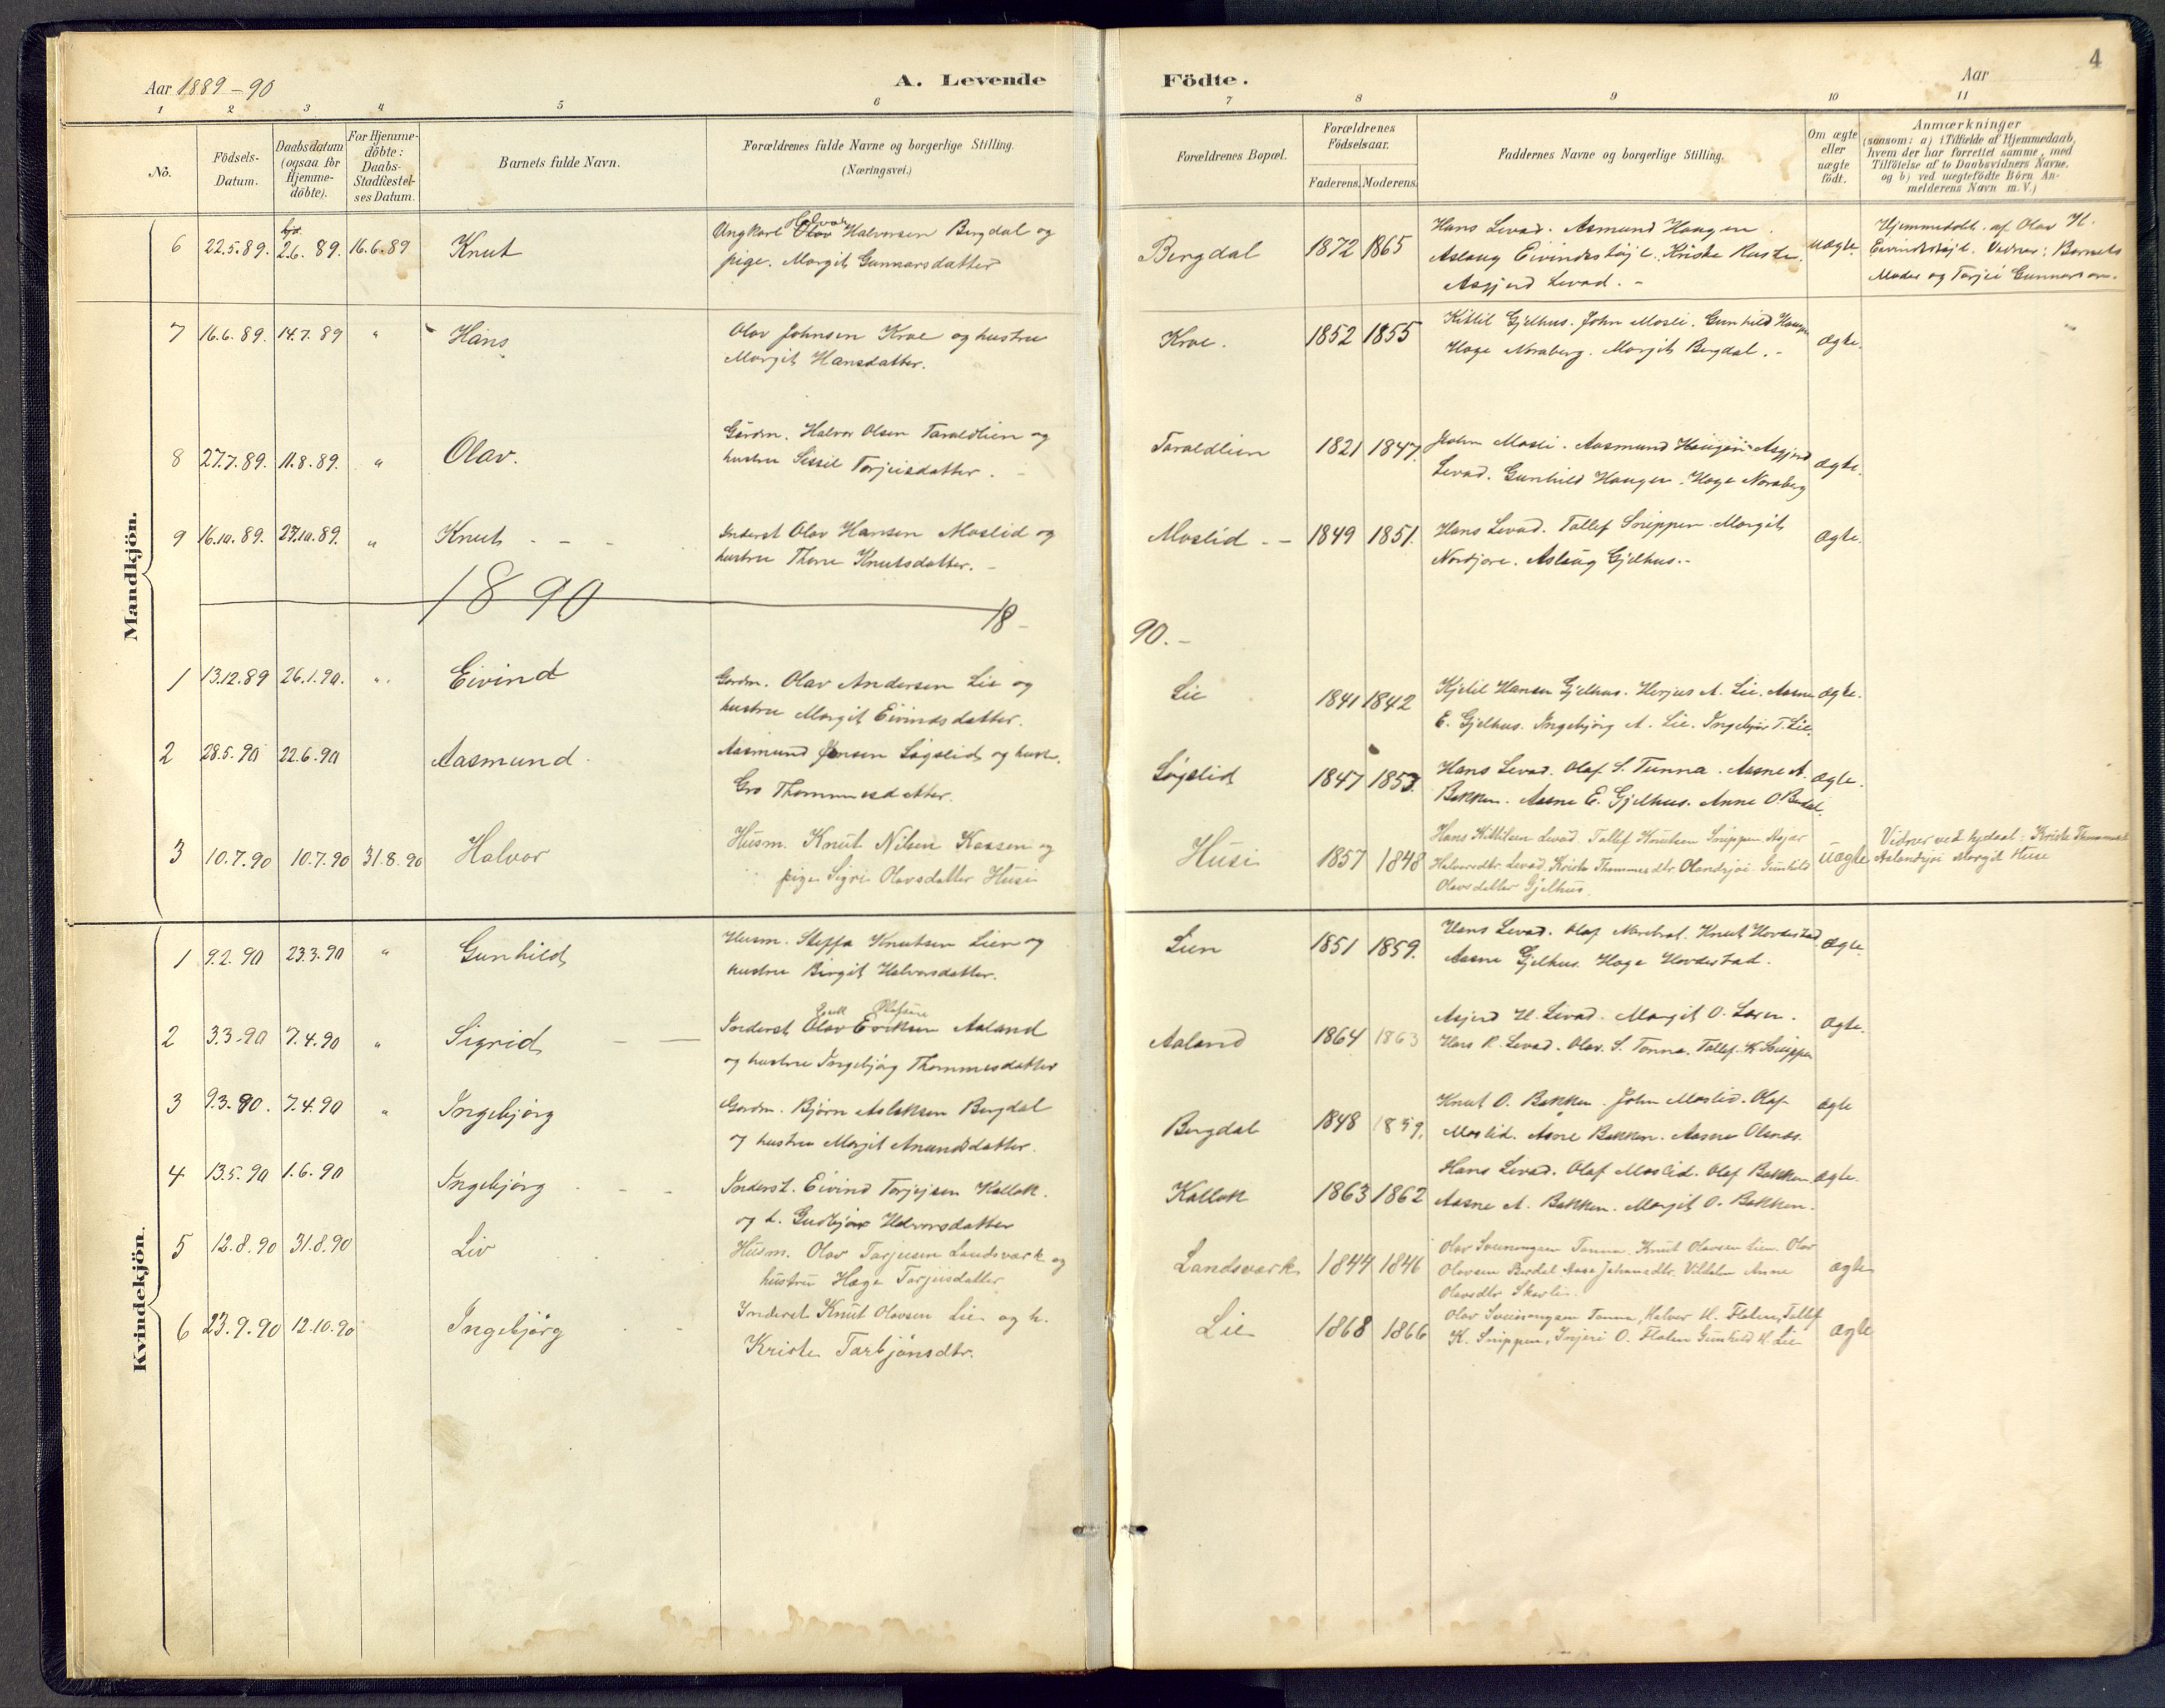 4
Aar 1889-90
A. Levende Födte.
Aar
1 2 3 4 5 6 7 8 9 10 11
Nô. Födsels-Datum. Daabsdatum (ogsaa for Hjemme-döbte). For Hjemme-döbte: Daabs-Stadfæstel-ses Datum. Barnets fulde Navn. Forældrenes fulde Navne og borgerlige Stilling. (Næringsvei.) Forældrenes Bopæl. Forældrenes Födselsaar. Faderens. Moderens. Faddernes Navne og borgerlige Stilling. Om ægte eller uægte födt. Anmærkninger (saasom: a) i Tilfælde af Hjemmedaab, hvem der har forrettet samme, med Tilföielse af to Daabsvidners Navne, og b) ved uægtefödte Börn An-melderens Navn m. V.)
Mandkjön.
6 22.5.89. hjd. 2.6.89. 16.6.89 Knut Ungkarl Olav Halvor Halvorsen Bergdal og Bergdal 1872 1865 Hans Levad. Asmund Haugen. uægte. Hjemmedøbt af Olav H.
pige. Margit Gunnarsdatter Aslaug Eivindstøjl. Kriste Eivindstøjl. Vidner: Barnets
Asgjerd Levad. - Moder og Torjei Gunnarson.
7 16.6.89. 14.7.89 " Hans Olav Johnsen Kroe og hustru Kroe. 1852 1855 Kittil Gjelhus. John Mosli. Gunhild Haugen ægte. "
Margit Hansdatter. Hoge Noraberg. Margit Bergdal. -
8 27.7.89. 11.8.89. " Olav. Gårdm. Halvor Olsen Taraldlien og Taraldlien 1821 1847. John Mosli. Aasmund Haugen. Asgjerd ægte.
hustru Sissil Torjeisdatter. - Levad. Gunhild Haugen. Hoge Noraberg
9 16.10.89. 27.10.89. " Knut - - - Inderst Olav Hansen Moslid og Moslid - - 1849 1851. Hans Levad. Tallef Sneppen. Margit ægte.
hustru Thone Knutsdatter. - Nordjore. Aslaug Gjelhus. -
1890 18- 90.-
1 13.12.89 26.1.90. " Eivind Gardm. Olav Andersen Lie og Lie 1841 1842 Kjetil Hansen Gjelhus. Herjus A. Lie. Aasne ægte.
hustru Margit Eivindsdatter. E. Gjelhus. Ingebjörg A. Lie. Ingebjør T. Lie.
2 28.5.90 22.6.90 Aasmund. Aasmund Jensen Løgslid og hustr. Løgslid 1847 1853. Hans Levad. Olaf S. Tunna. Aasne A. ægte.
Gro Thommesdatter. Bakken. Aasne E. Gjelhus. Anne O.
3 10.7.90 10.7.90 31.8.90 Halvor Husm. Knut Nilsen Kaasen og Husi 1857 1848 Hans Kittilsen Levad. Tallef Knutsen Sneppen. Asjer uægte Vidner ved hjdaab: Kriste
pige Sigri Olavsdatter Husi Halvorsdtr Levad. Kriste Thommesdtr. Gunhild Margit Huse
Olavsdatter Gjelhus.
Kvindekjön.
1 9.2.90 23.3.90 " Gunhild Husm. Steffa Knutsen Lien og Lien 1851 1859. Hans Levad. Olaf Knut Hovdestad ægte.
hustru Birgit Halvorsdatter. Aasne Gjelhus. Hoge Hovdestad.
2 3.3.90 7.4.90 " Sigrid - - Inderst Olav Eriksen Aaland Aaland 1864 1863 Asjerd H. Levad. Margit O. ægte.
og hustru Ingebjörg Thommesdatter Hans K. Levad. Olav. S. Tonna. Tallef. K. Sneppen
3 9.3.90. 7.4.90 " Ingebjörg Gardm. Björn Aslaksen Bergdal Bergdal 1848 1859. Knut O. Bakken. John Moslid. Olaf ægte
og hustru Margit Anundsdatter. Moslid. Asne Bakken. Aasne
4 13.5.90 1.6.90 Ingebjörg - - Inderst. Eivind Torjeisen Kallak. Kallak 1863 1862 Hans Levad. Olaf Moslid. Olaf Bakken ægte.
og h. Gudbjør Halvorsdatter Aasne A. Bakken. Margit O. Bakken.
5 12.8.90 31.8.90 Liv Husm. Olav Tarjeisen Landsvark og Landsvark 1844 1846 Olav Sveinungsen Tonna. Knut Olavsen Lien. Olav ægte
hustru Hæge Tarjeisdatter Olavsen Aase Johansdtr. Anne
Olavsdtr
6 23.9.90 12.10.90 Ingebjörg Inderst Knut Olavsen Lie og h. Lie 1868 1866 Olav Sveinungsen Tonna, Halvor H. Flaten, Tallef ægte
Kriste Tarbjönsdtr. K. Sneppen, O. Flaten Gunhild H. Lie